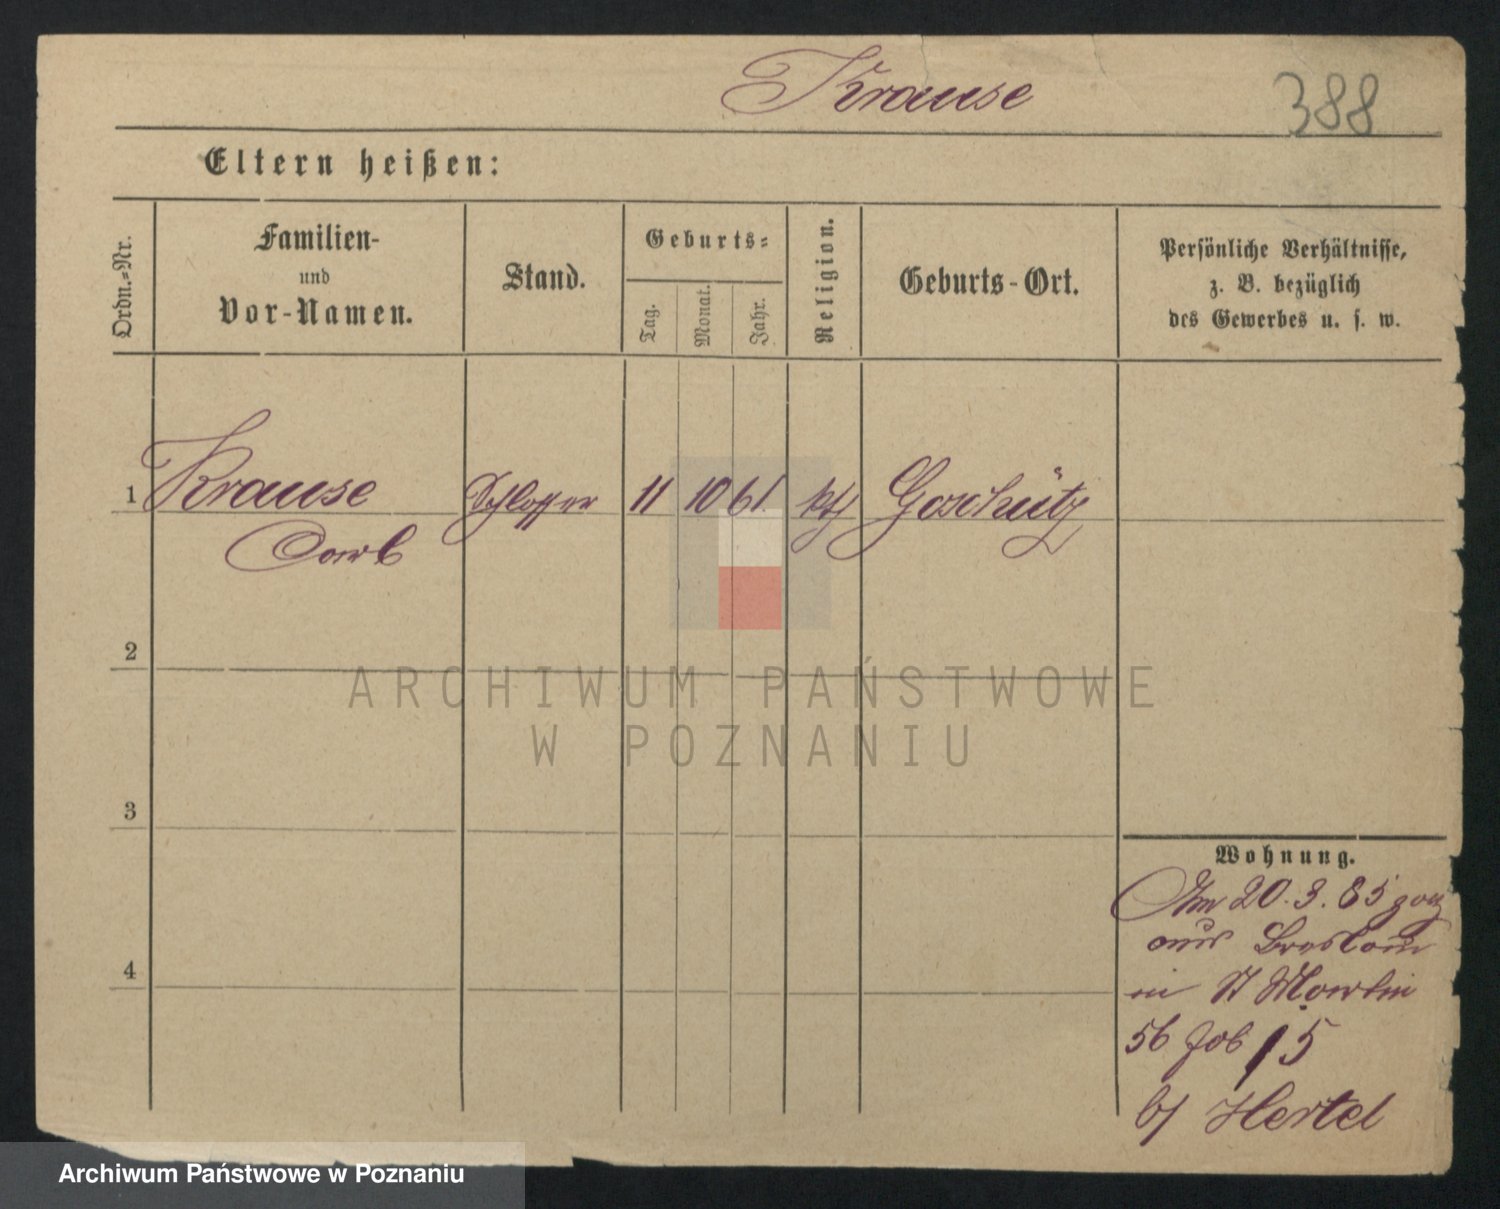 Krause
388
Eltern heißen:
Ordn.-Nr.
Familien-
und
Vor-Namen.
Stand.
Geburts-
Tag.
Monat.
Jahr.
Religion.
Geburts-Ort.
Persönliche Verhältnisse,
z. B. bezüglich
des Gewerbes u. s. w.
1 Krause Schlosser 11 10 61. kth Goschütz
Carl
2
3
4
Wohnung.
Am 20.3.85
aus Breslau
in St Martin
56 15
b/ Hertel
ARCHIWUM PAŃSTWOWE
W POZNANIU
Archiwum Państwowe w Poznaniu